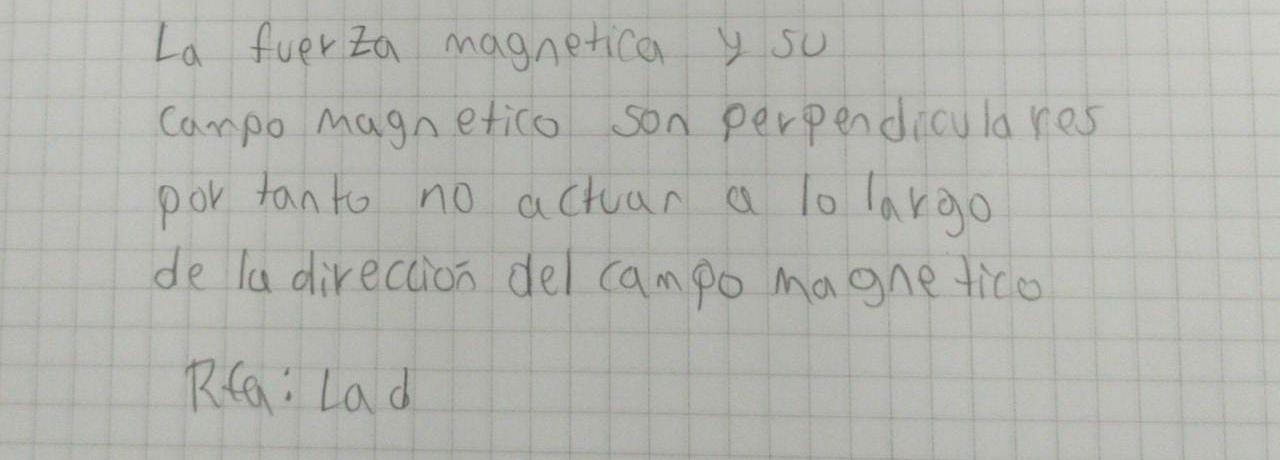 La fuerza magnetica y su
campo magnetico son perpendiculares
por tanto no actuan a lo largo
de la dirección del campo magnetico
Rta: La d